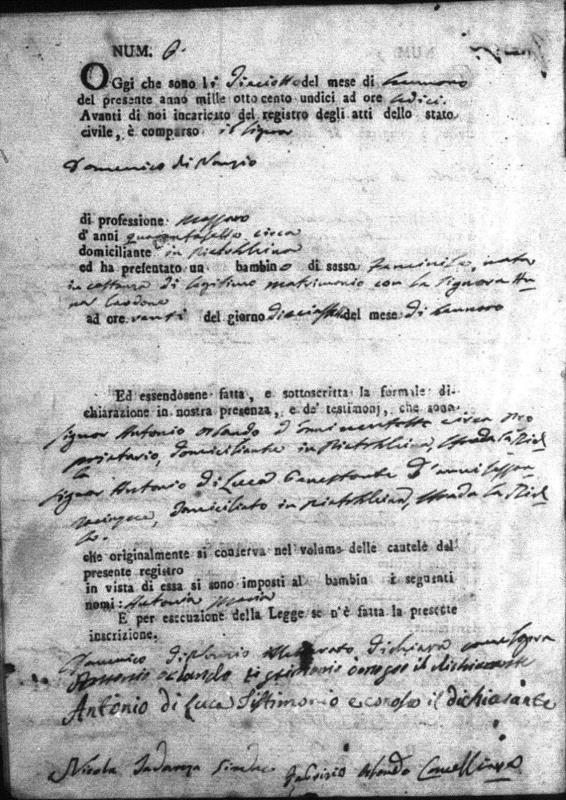 NUM. 6.
OGgi che sono li Dieciotto del mese di Gennaro
del presente anno mille ottocento undici ad ore sedici.
Avanti di noi incaricato del registro degli atti dello stato
civile, è comparso il Signor
Domenico di Nunzio
di professione Massaro
d' anni quarantasette circa
domiciliante in
ed ha presentato un bambino di sesso Feminile, nata
in costanza di legitimo matrimonio con la Signora An
na Cardone
ad ore venti del giorno del mese di Gennaro
Ed essendosene fatta, e sottoscritta la formale di-
chiarazione in nostra presenza, e de' testimonj, che sono.
Signor Antonio Orlando d'anni circa pro
prietario, domiciliante in Strada
la
Signor Antonio di Luca d'anni
cinque, domiciliato in Strada
che originalmente si conserva nel volume delle cautele del
presente registro
in vista di essa si sono imposti al bambin i seguenti
nomi: Antonia Maria
E per esecuzione della Legge se n'è fatta la presente
inscrizione.
Domenico di Nunzio dichiara come sopra
Antonio Orlando Testimonio conosco il dichiarante
Antonio di Luca Testimonio e conosco il dichiarante
Nicola Sindaco Fabrizio Orlando Cancelliere